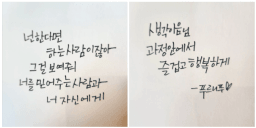 넌한다면
하는사람이잖아
그걸보여줘
너를 믿어주는사람과
너 자신에게
생각이음님
과정안에서
즐겁고 행복하게
-푸르니뚜♡